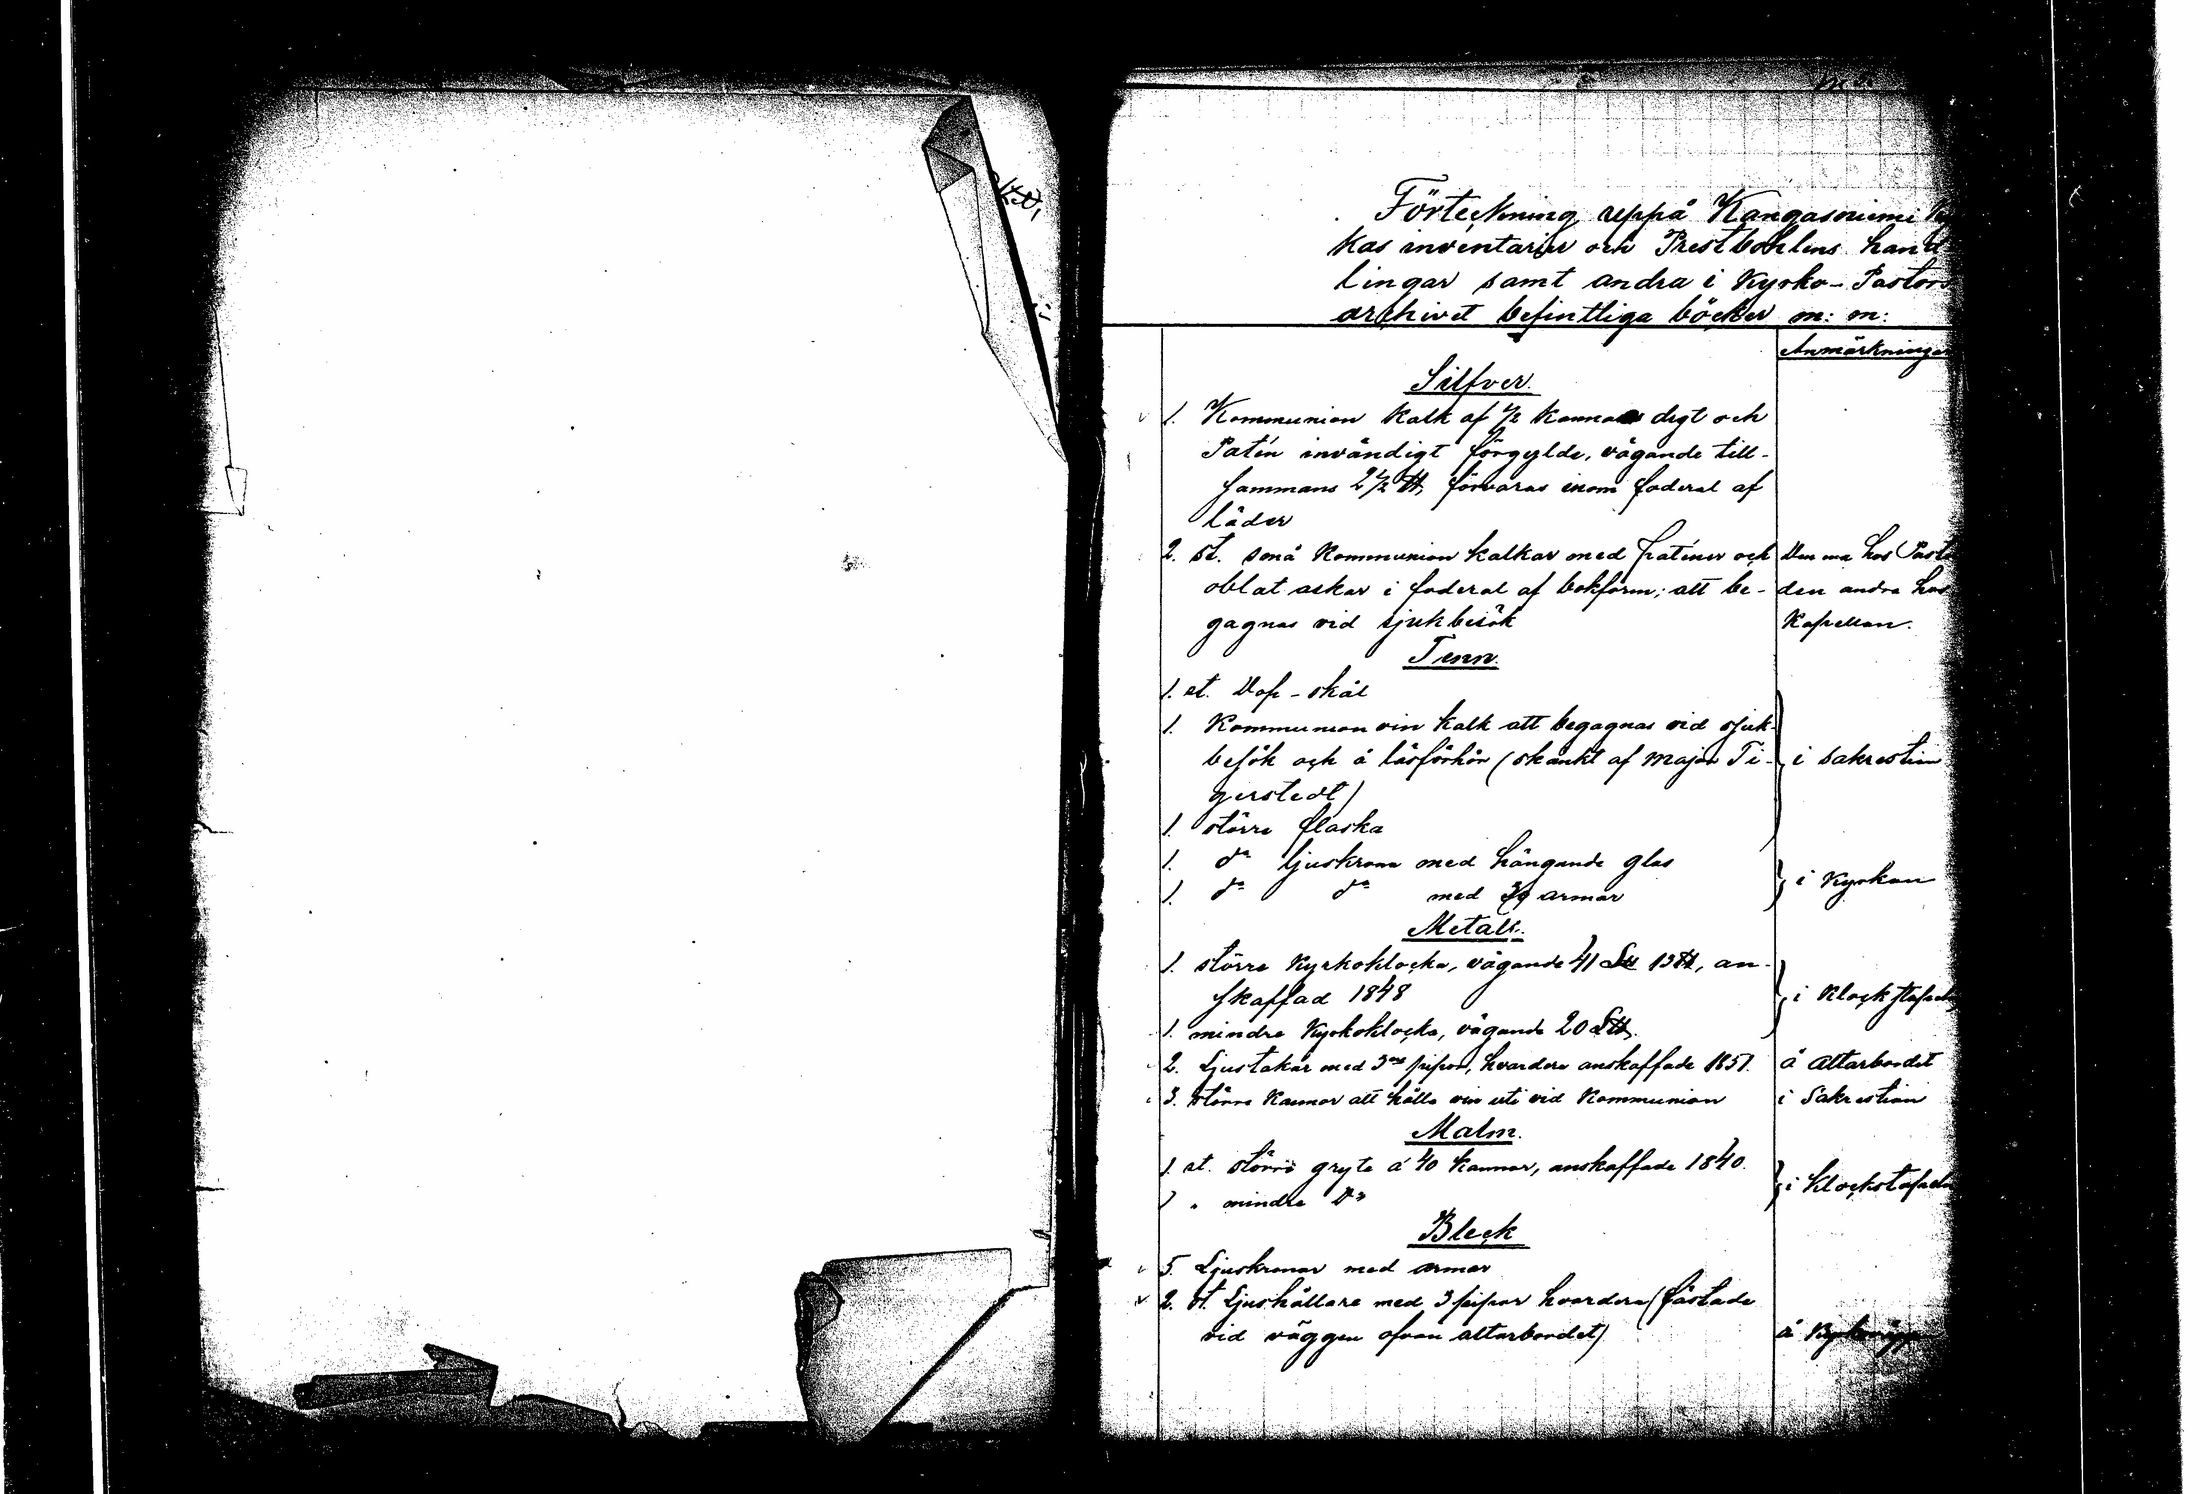 Förteckning uppå Kangasniemi
kas inventarier och Prestbohlens hand
lingar samt andra i Kyrko-Pastors
archivet befintliga böcker m: m:
Anmärkningar
Silfver.
1. Kommunion kalk af 1/2 kannas drgt och
Patén invändigt förgylde, vägande till-
sammans 2 1/2 ℔, förvaras inom foderal af
läder
2. st. små Kommunion kalkar med paténer och
Den ena hos Pasto
oblat askar i foderal af bokform; att be-
den andra hos
gagnas vid sjukbesök
Kapellan.
Tenn.
1. st. Dop-skål
1. Kommunion vin kalk att begagnas vid sjuk-
besök och å läsförhör (skänkt af Major Ti-
i sakrestian
gerstedt)
1. större flaska
1. do ljuskrona med hängande glas
i Kyrkan
1. do do med armar
Metall.
1. större Kyrkoklocka, vägande 41 L℔ 13℔, an-
skaffad 1848
i Klockstapeln
1. mindre Kyrkoklocka, vägande 20 L℔.
2. Ljustakar med 3ne pipor, hvardera anskaffade 1851.
å Altarbordet
3. större Kannor att hålla vin uti vid Kommunion
i Sakrestian
Malm.
1 st. större gryta á 40 kannor, anskaffade 1840.
i klockstapeln
1 " mindre Do
Bleck
5. Ljuskronor med armar
2. st. Ljushållare med 3 pipor hvardera (fästade
vid väggen ofvan altarbordet)
å